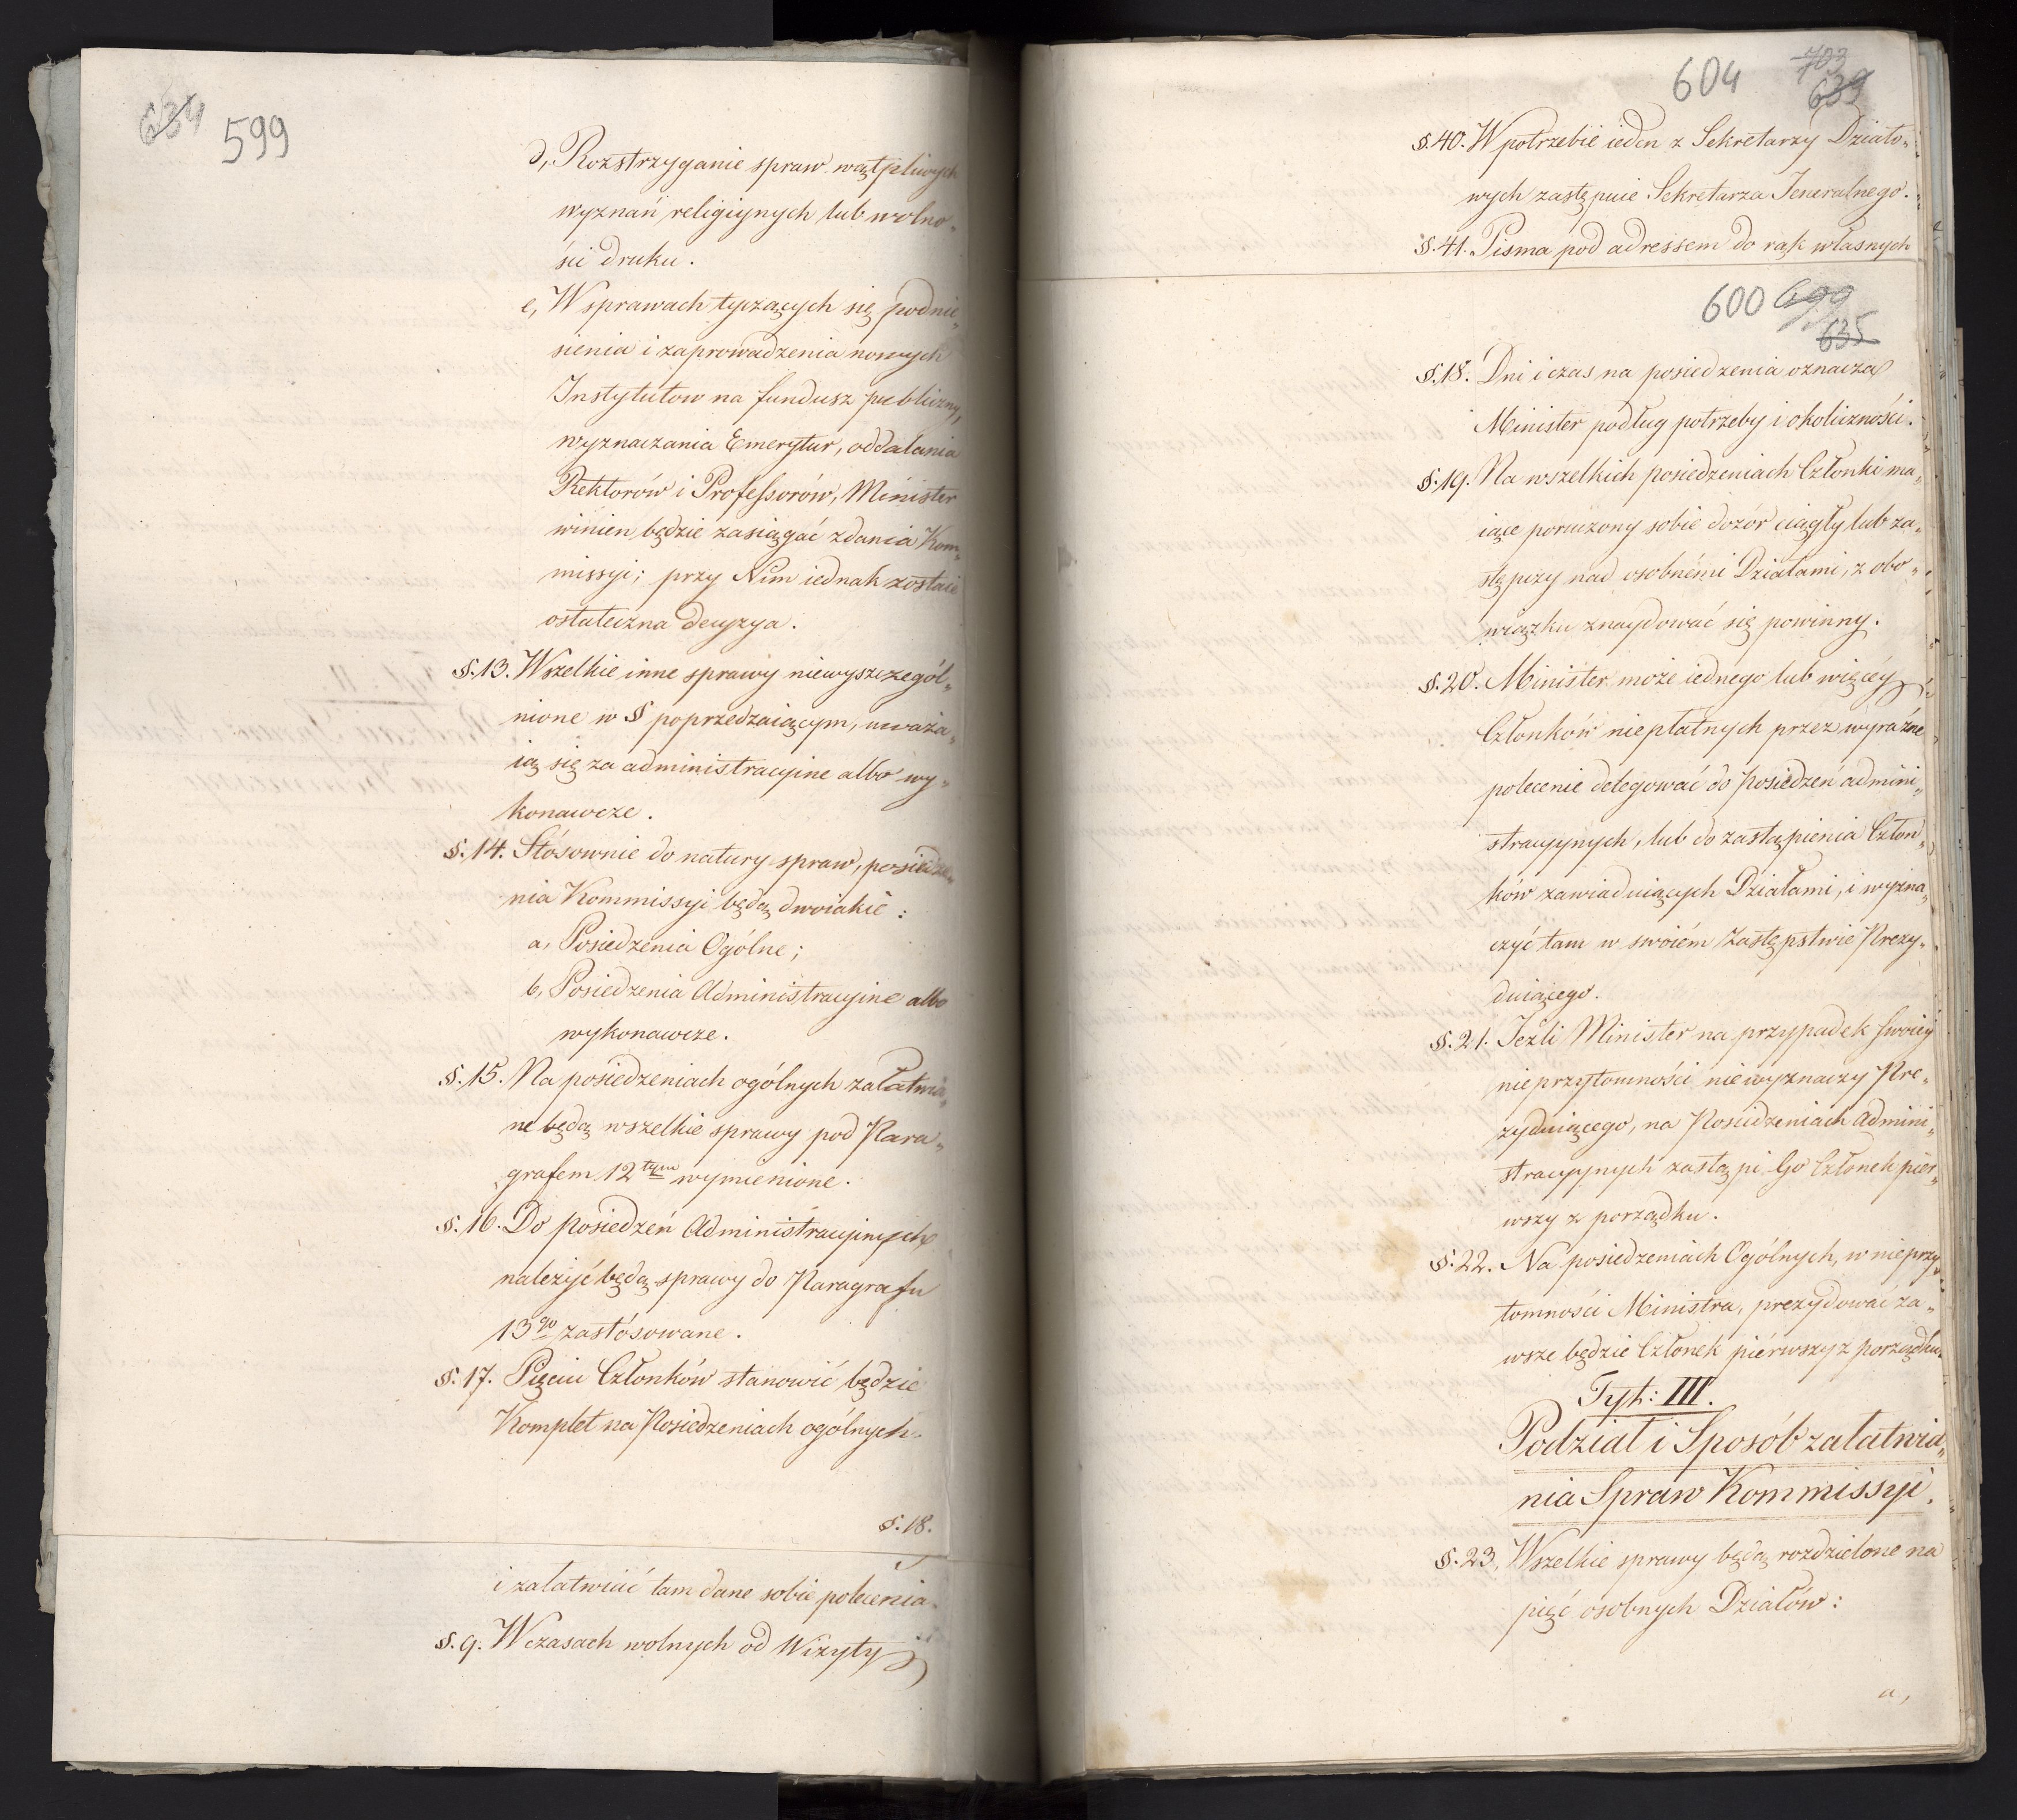 634 599
d, Rozstrzyganie spraw wątpliwych
wyznań religiynych lub wolno„
ści druku.
e, W sprawach tyczących się podnie„
sienia i zaprowadzenia nowych
Instytutow na fundusz publiczny,
wyznaczania Emerytur, oddalania
Rektorów i Professorów, Minister
winien będzie zasiągać zdania Kom„
missyi; przy Nim iednak zostaie
ostateczna decyzya.
§. 13. Wszelkie inne sprawy niewyszczegól„
nione w § poprzedzaiącym, uważa„
ią się za administracyine albo wy„
konawcze.
§. 14. Stósownie do natury spraw, posiedze„
nia Kommissyi będą dwoiakie:
a, Posiedzenia Ogólne;
b, Posiedzenia Administracyine albo
wykonawcze.
§. 15. Na posiedzeniach ogólnych załatwia„
ne będą wszelkie sprawy pod Para„
grafem 12tym wymienione.
§. 16. Do Posiedzeń Administracyinych
należyć będą sprawy do Paragrafu
13go zastósowane.
§. 17. Pięciu Członków stanowić będzie
Komplet na Posiedzeniach ogólnych.
§. 18.
i załatwiać tam dane sobie polecenia.
§. 9. W czasach wolnych od Wizyty
604 703
639
§. 40. W potrzebie ieden z Sekretarzy Działo„
wych zastępuie Sekretarza Jeneralnego.
§. 41. Pisma pod adressem do rąk własnych
600 699
635
§. 18. Dni i czas na posiedzenia oznacza
Minister podług potrzeby i okoliczności.
§. 19. Na wszelkich posiedzeniach Członki ma„
iące poruczony sobie dozór ciągły lub za„
stępczy nad osobnémi Działami, z obo„
wiązku znaydować się powinny.
§. 20. Minister może iednego lub więcéy
Członków niepłatnych przez wyraźne
polecenie delegować do Posiedzeń admini„
stracyynych, lub do zastąpienia Człon„
ków zawiaduiących Działami, i wyzna„
czyć tam w swoiém Zastępstwie Prezy„
duiącego.
§. 21. Jeźli Minister na przypadek swoiey
nieprzytomności niewyznaczy Pre„
zyduiącego, na Posiedzeniach Admini„
stracyynych zastąpi Go Członek pier„
wszy z porządku.
§. 22. Na posiedzeniach Ogólnych, w nieprzy„
tomności Ministra, prezydować za„
wsze będzie Członek piérwszy z porządku.
Tyt: III.
Podział i Sposób załatwia„
nia Spraw Kommissyi.
§. 23. Wszelkie sprawy będą rozdzielone na
pięć osobnych Działów:
a,